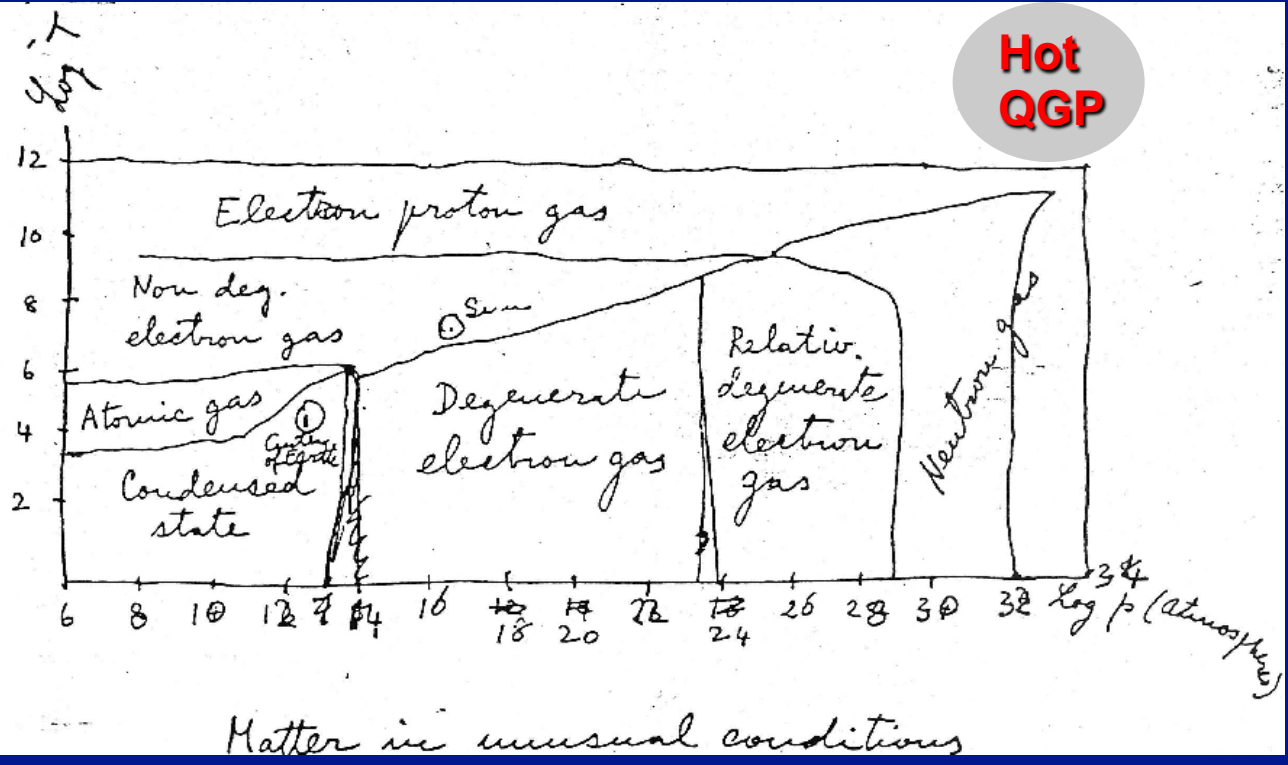 Hot
QGP
Log T
12
Electron proton gas
10
Non deg.
8
electron gas
Sun
6
Atomic gas
4
Center
of Earth
Condensed
state
2
Degenerate
electron gas
Relativ.
degenerate
electron
gas
Neutron gas
6 8 10 12 14 16 18 20 22 24 26 28 30 32 34
Log p (atmospheres)
Matter in unusual conditions